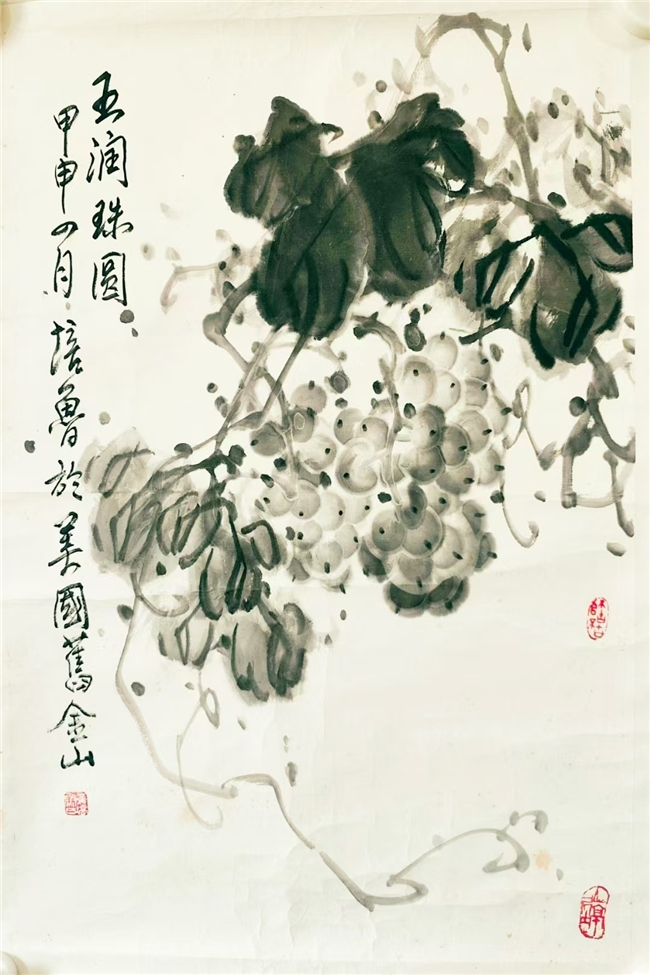 玉润珠圆
甲申四月培鲁於美國舊金山